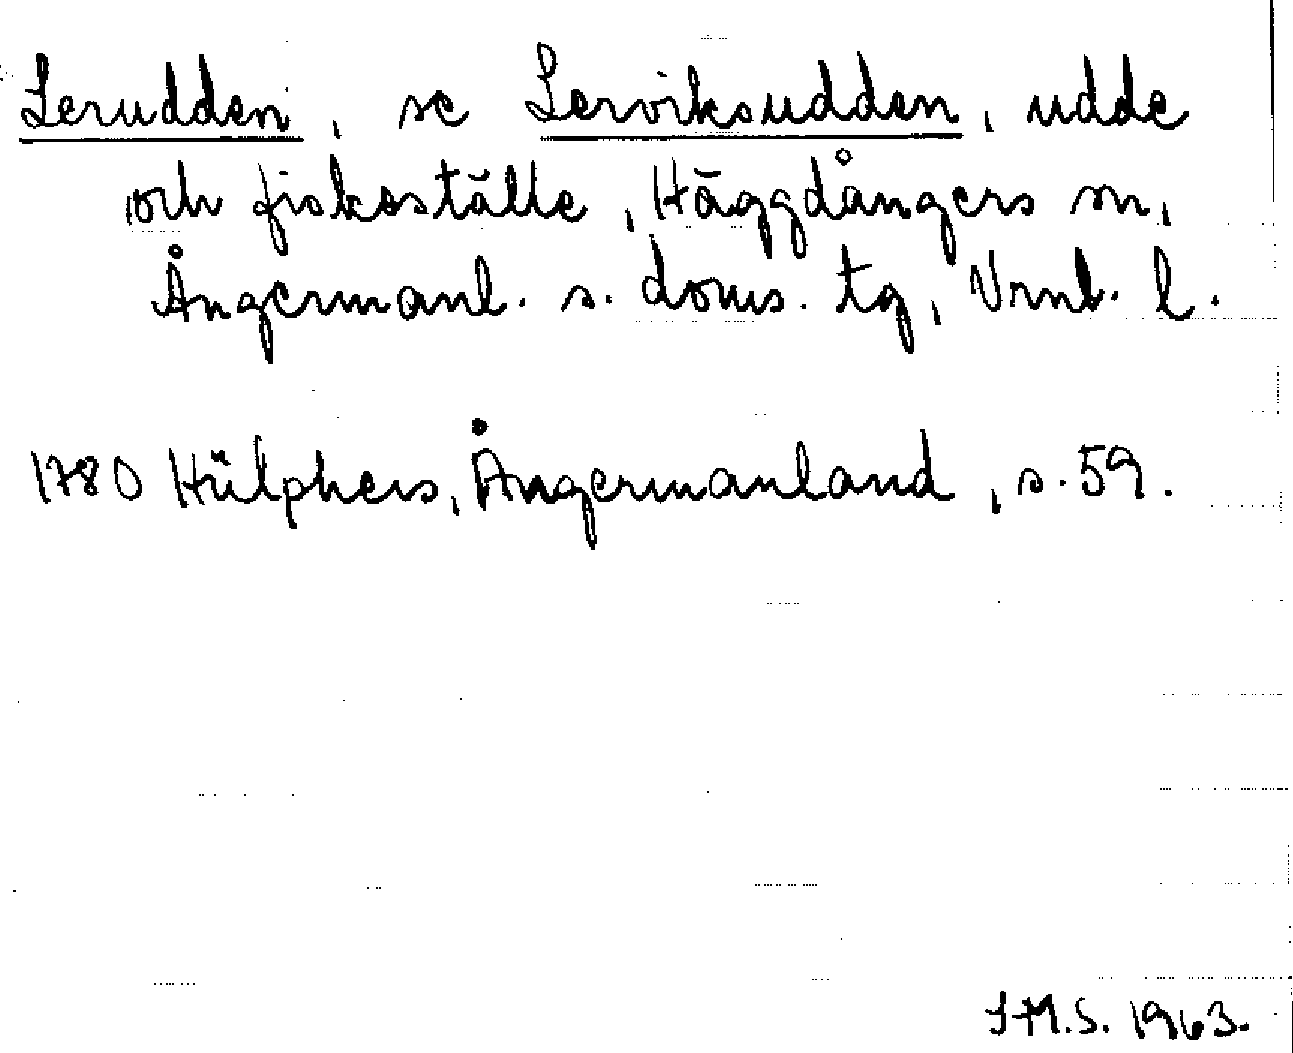 Lerudden, se Lerviksudden, udde
och fiskeställe, Häggdångers sn,
Ångermanl. s. doms. tg, Vrnl. l.
1780 Hülphers, Ångermanland, s. 59.
I.M.S. 1963.